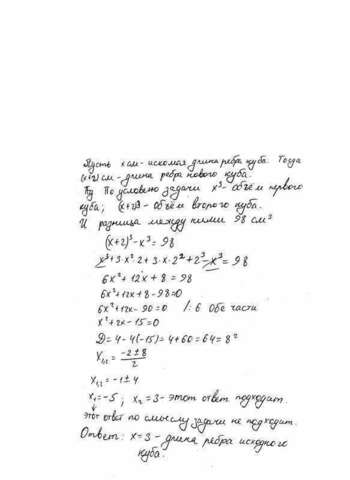 Пусть x см - искомая длина ребра куба. Тогда
(x+2) см - длина ребра нового куба.
По условию задачи x³ - объём первого
куба; (x+2)³ - объём второго куба.
И разница между ними 98 см³
(x+2)³-x³=98
x³+3·x²·2+3·x·2²+2³-x³=98
6x²+12x+8=98
6x²+12x+8-98=0
6x²+12x-90=0 /:6 Обе части
x²+2x-15=0
D=4-4(-15)=4+60=64=8²
x₁,₂=(-2±8)/2
x₁,₂=-1±4
x₁=-5; x₂=3-этот ответ подходит.
этот ответ по смыслу задачи не подходит.
Ответ: x=3 - длина ребра исходного
куба.